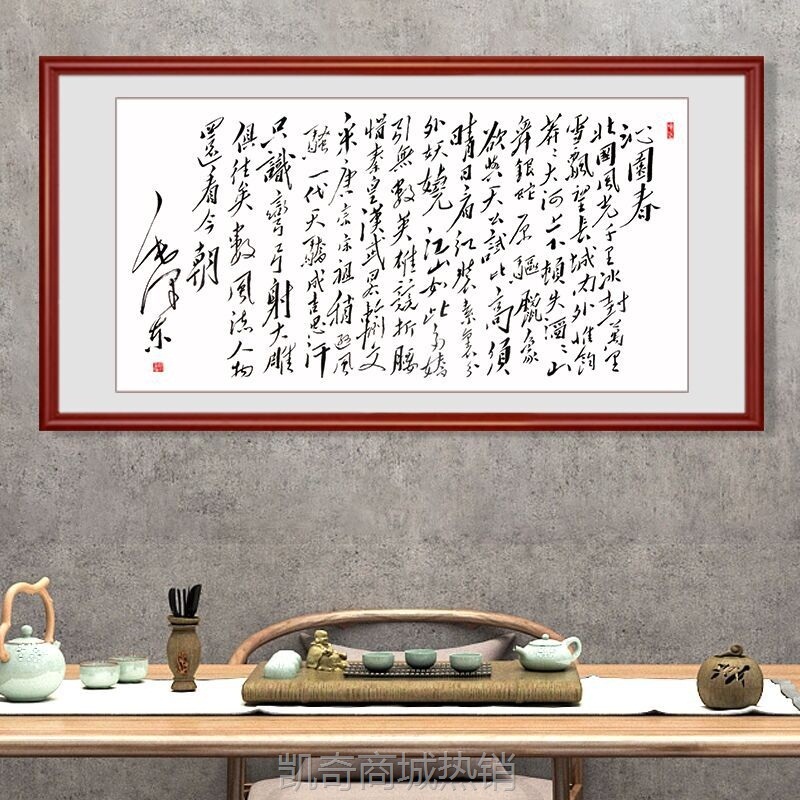 沁園春
北國風光千里冰封萬里
雪飄望長城內外惟餘
莽〻大河上下頓失滔〻山
舞銀蛇原驅臘象
欲與天公試比高須
晴日看紅裝素裹分
外妖嬈江山如此多嬌
引無數英雄競折腰
惜秦皇漢武略輸文
采唐宗宋祖稍遜風
騷一代天驕成吉思汗
只識彎弓射大雕
俱往矣數風流人物
還看今朝
毛澤東
凯奇商城热销